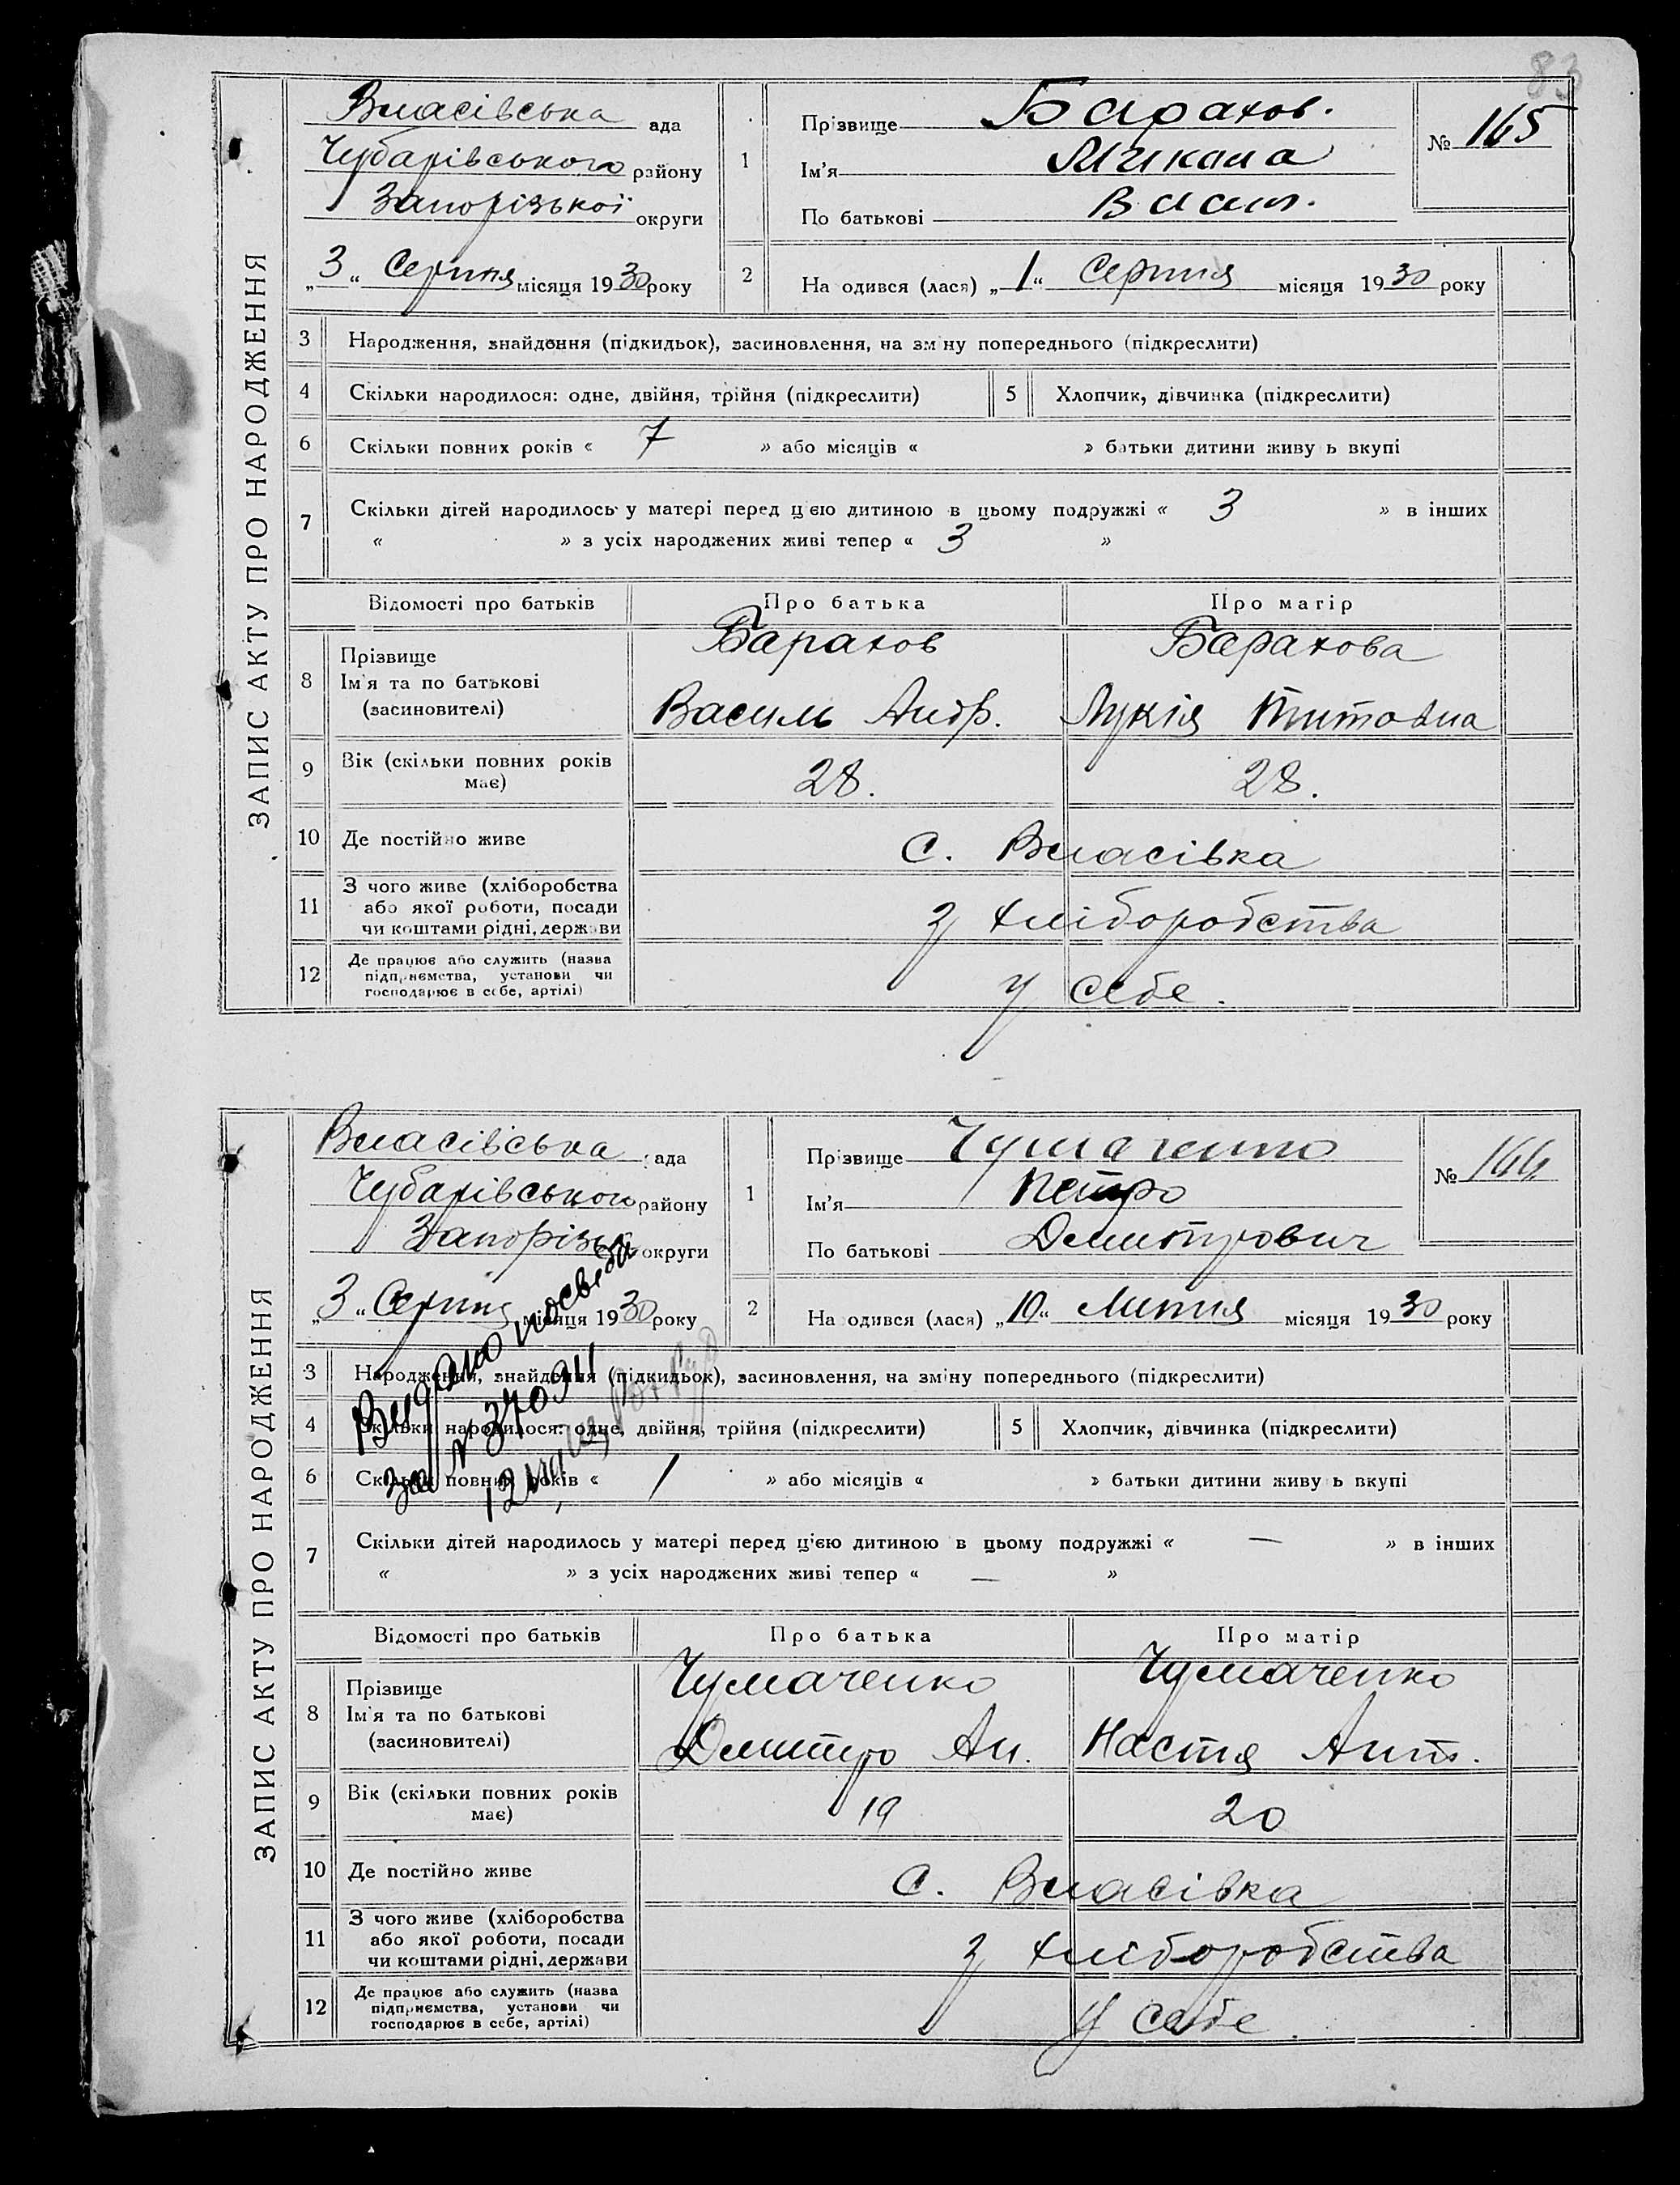 83
ЗАПИС АКТУ ПРО НАРОДЖЕННЯ
Власівська ада
Чубарівського району
Запорізької округи
„3“ Серпня місяця 1930 року
1
Прізвище Барахов.
Ім'я Микола
По батькові Васил.
№ 165
2
На одився (лася) „1“ Серпня місяця 1930 року
3 Народження, знайдення (підкидьок), засиновлення, на зміну попереднього (підкреслити)
4 Скільки народилося: одне, двійня, трійня (підкреслити) 5 Хлопчик, дівчинка (підкреслити)
6 Скільки повних років « 7 » або місяців « » батьки дитини живу ь вкупі
7 Скільки дітей народилось у матері перед цією дитиною в цьому подружжі « 3 » в інших
« » з усіх народжених живі тепер « 3 »
Відомості про батьків Про батька Про матір
8 Прізвище Барахов Барахова
Ім'я та по батькові
(засиновителі) Василь Андр. Лукія Титовна
9 Вік (скільки повних років
має) 28. 28.
10 Де постійно живе с. Власівка
11 З чого живе (хліборобства
або якої роботи, посади
чи коштами рідні, держави з хліборобства
12 Де працює або служить (назва
підприємства, установи чи
господарює в себе, артілі) у себе.
ЗАПИС АКТУ ПРО НАРОДЖЕННЯ
Власівська ада
Чубарівського району
Запорізьк округи
„3“ Серпня місяця 1930 року
1
Прізвище Чумаченко
Ім'я Петро
По батькові Дмитрович
№ 166
2
На одився (лася) „10“ Липня місяця 1930 року
Видано посвідч
за №
3 Народження, знайдення (підкидьок), засиновлення, на зміну попереднього (підкреслити)
4 Скільки народилося: одне, двійня, трійня (підкреслити) 5 Хлопчик, дівчинка (підкреслити)
6 Скільки повних років « 1 » або місяців « » батьки дитини живу ь вкупі
7 Скільки дітей народилось у матері перед цією дитиною в цьому подружжі « — » в інших
« » з усіх народжених живі тепер « — »
Відомості про батьків Про батька Про матір
8 Прізвище Чумаченко Чумаченко
Ім'я та по батькові
(засиновителі) Дмитро Ан. Настя Ант.
9 Вік (скільки повних років
має) 19 20
10 Де постійно живе с. Власівка
11 З чого живе (хліборобства
або якої роботи, посади
чи коштами рідні, держави з хліборобства
12 Де працює або служить (назва
підприємства, установи чи
господарює в себе, артілі) у себе.